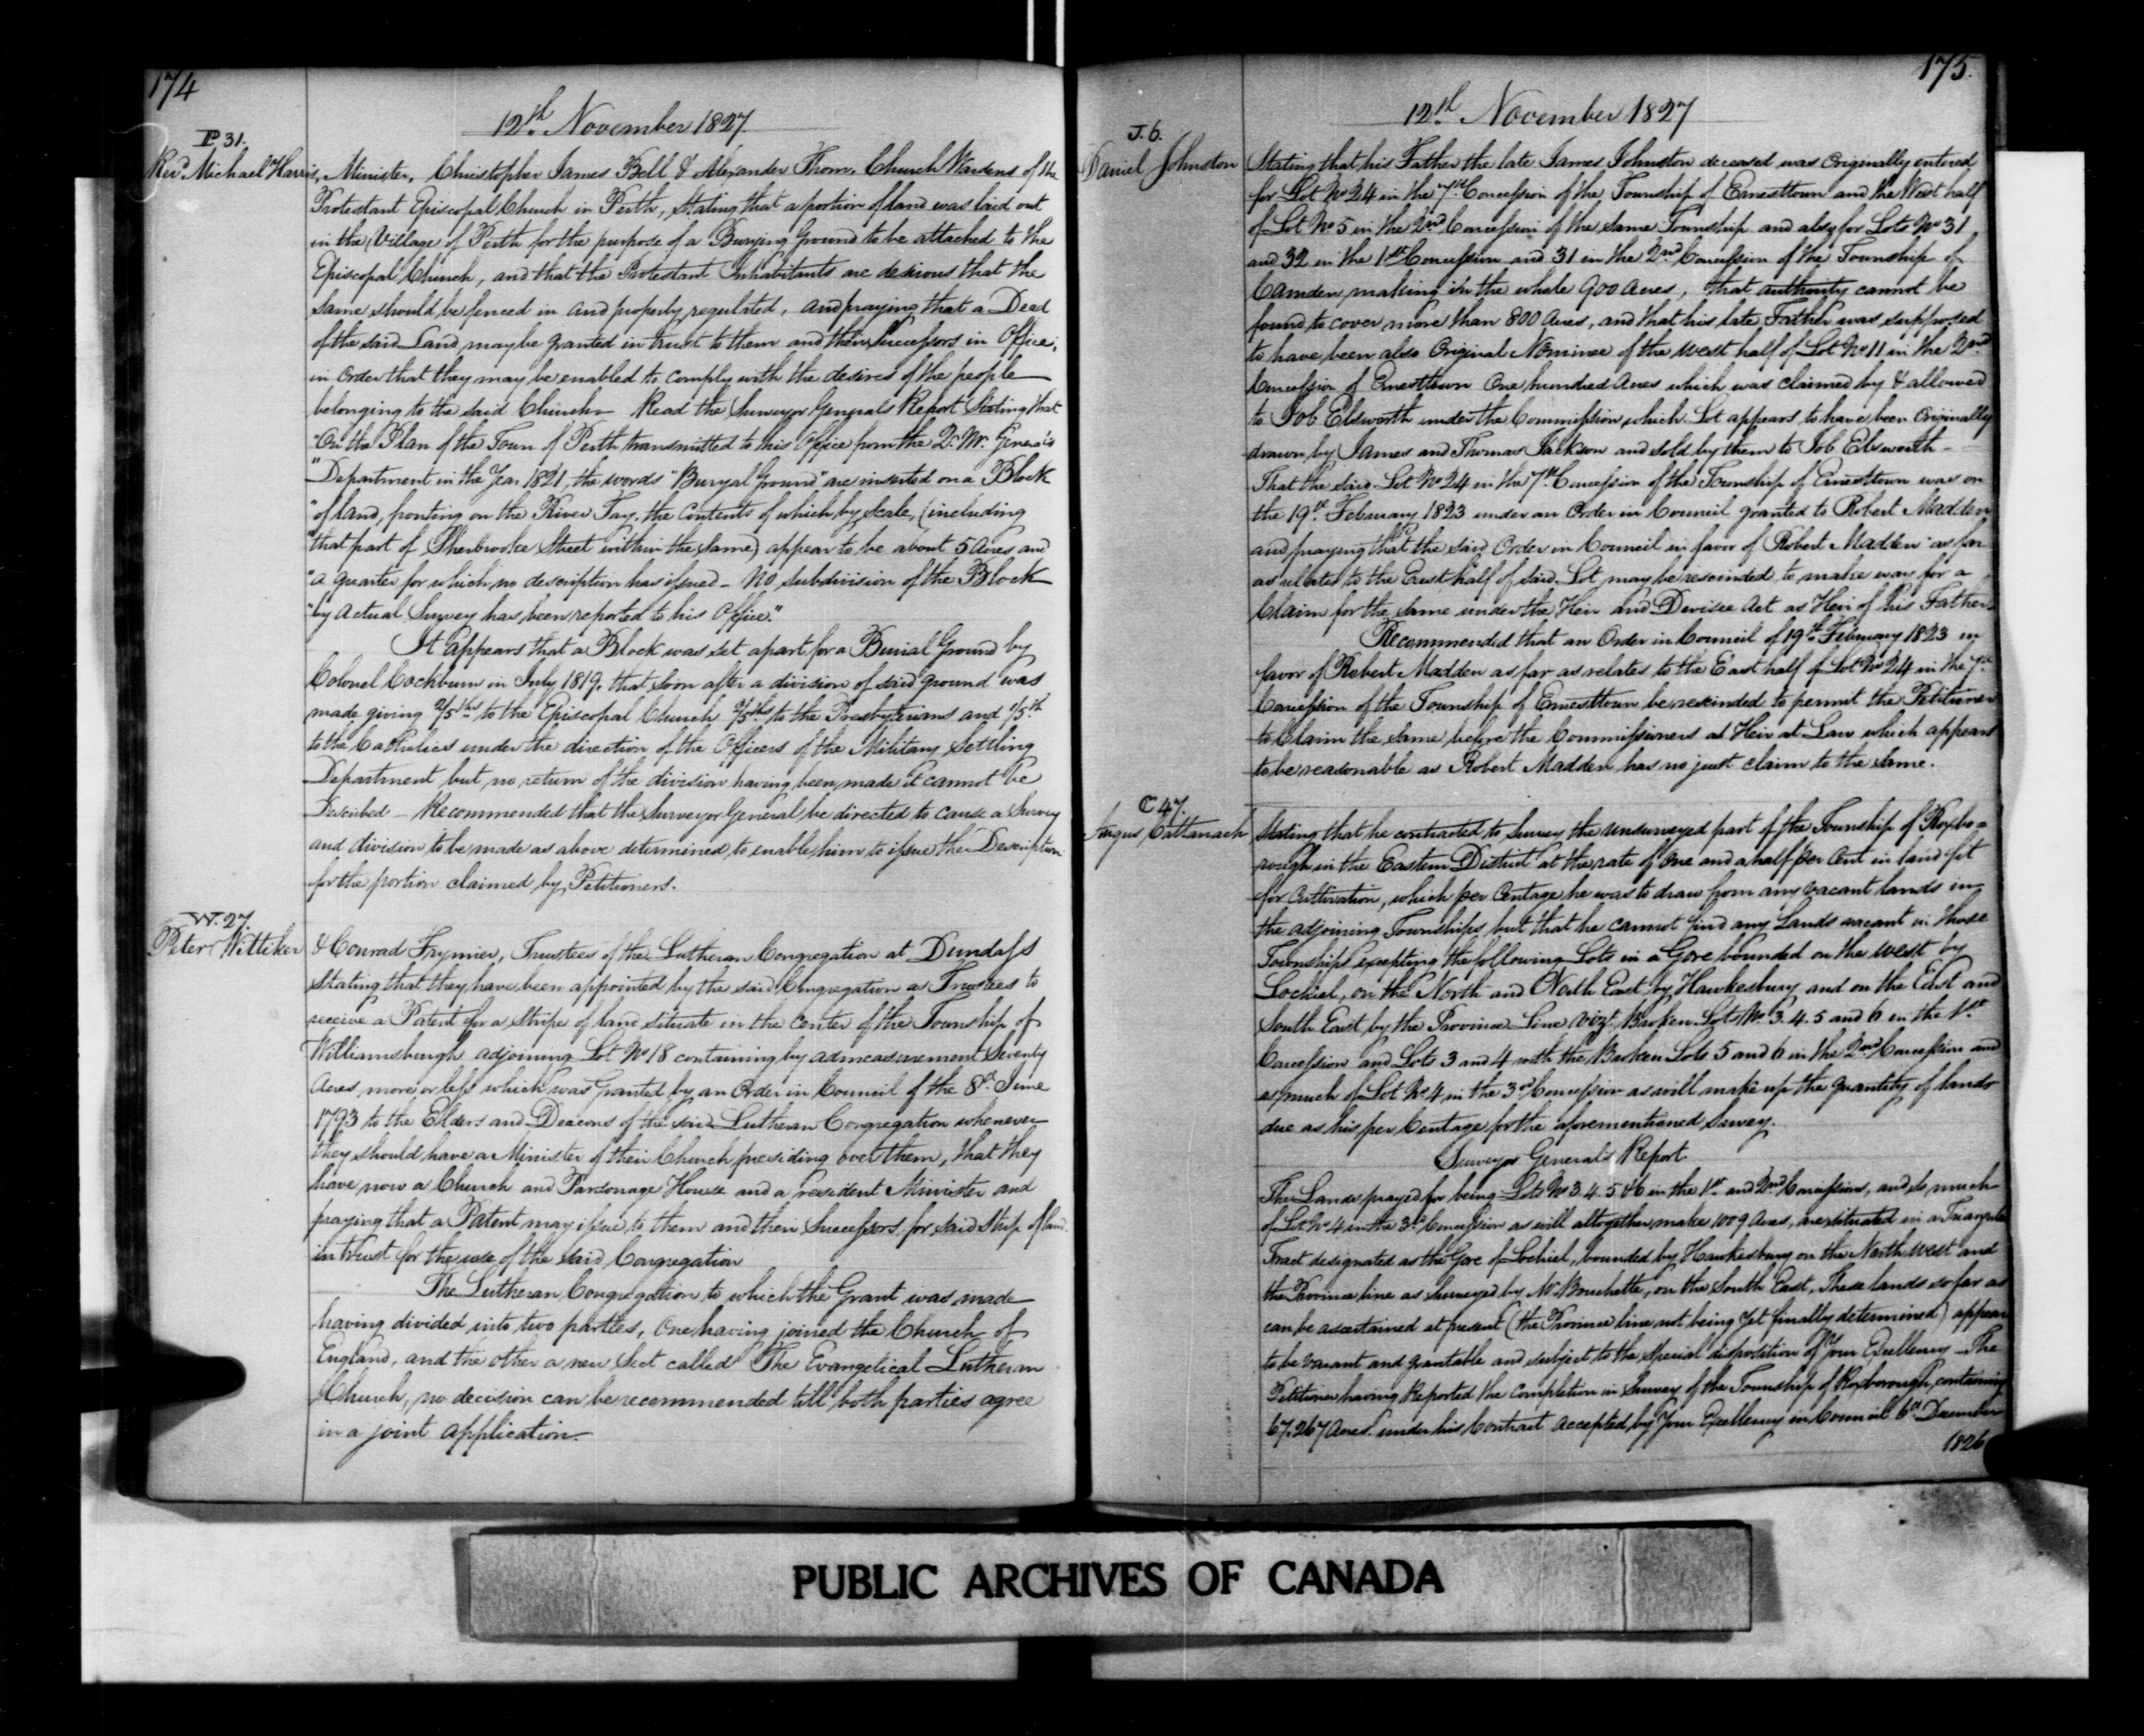 174
12th November 1827.
P 31.
Revd Michael Harris, Minister, Christopher James Bell & Alexander Thom, Church Wardens of the
Protestant Episcopal Church in Perth, Stating that a portion of land was laid out
in the Village of Perth for the purpose of a Burying Ground to be attached to the
Episcopal Church, and that the Protestant Inhabitants are desirous that the
same should be fenced in and properly regulated, and praying that a Deed
of the said Land may be granted in trust to them and their Successors in Office,
in Order that they may be enabled to comply with the desires of the people
belonging to the said Church — Read the Surveyor Generals Report Stating that
"On the Plan of the Town of Perth transmitted to his Office from the Qr. Mr. General's
"Department in the Year 1821, the words "Buryal Ground" are inserted on a Block
"of land, fronting on the River Tay, the Contents of which by scale, (including
"that part of Sherbrooke Street within the same) appear to be about 5 Acres and
"a quarter for which no description has issued — No subdivision of the Block
"by Actual Survey has been reported to his Office."
It appears that a Block was set apart for a Burial Ground by
Colonel Cockburn in July 1819, that soon after a division of said ground was
made giving 2/5ths to the Episcopal Church 2/5ths to the Presbyterians and 1/5th
to the Catholics under the direction of the Officers of the Military Settling
Department but no return of the division having been made it cannot be
Described — Recommended that the Surveyor General be directed to cause a Survey
and division to be made as above determined, to enable him to issue the Description
for the portion claimed by Petitioners.
W. 27.
Peter Wittiker & Conrad Frymier, Trustees of the Lutheran Congregation at Dundass
Stating that they have been appointed by the said Congregation as Trustees to
receive a Patent for a Stripe of land situate in the Center of the Township of
Williamsburgh adjoining Lot No 18 containing by admeasurement Seventy
Acres more or less which was Granted by an Order in Council of the 8th June
1793 to the Elders and Deacons of the said Lutheran Congregation whenever
they should have a Minister of their Church presiding over them, that they
have now a Church and Parsonage House and a resident Minister and
praying that a Patent may issue to them and their Successors for said Strip of land
in trust for the use of the said Congregation
The Lutheran Congregation to which the Grant was made
having divided into two parties, One having joined the Church of
England, and the other a new Sect called The Evangelical Lutheran
Church, no decision can be recommended till both parties agree
in a joint application.
175.
12th November 1827
J. 6.
Daniel Johnston Stating that his Father the late James Johnston deceased was Originally entered
for Lot No 24 in the 7th Concession of the Township of Ernesttown and the West half
of Lot No 5 in the 2nd Concession of the same Township and also for Lots No 31
and 32 in the 1st Concession and 31 in the 2nd Concession of the Township of
Camden, making in the whole 900 Acres, that authority cannot be
found to cover more than 800 Acres, and that his late Father was supposed
to have been also Original Nominee of the west half of Lot No 11 in the 2nd
Concession of Ernesttown One hundred Acres which was claimed by & allowed
to Job Elsworth under the Commission which Lot appears to have been Originally
drawn by James and Thomas Jackson and sold by them to Job Elsworth —
That the said Lot No 24 in the 7th Concession of the Township of Ernesttown was on
the 19th February 1823 under an Order in Council granted to Robert Madden
and praying that the said Order in Council in favor of Robert Madden as far
as relates to the East half of said Lot may be rescinded to make way for a
Claim for the same under the Heir and Devisee Act as Heir of his Father.
Recommended that an Order in Council of 19th February 1823 in
favor of Robert Madden as far as relates to the East half of Lot No 24 in the 7th
Concession of the Township of Ernesttown be rescinded to permit the Petitioner
to Claim the same before the Commissioners as Heir at Law which appears
to be reasonable as Robert Madden has no just claim to the same.
C 47.
Angus Cattanach Stating that he contracted to Survey the unsurveyed part of the Township of Roxbo=
rough in the Eastern District at the rate of One and a half per Cent in land fit
for Cultivation, which per Centage he was to draw from any vacant lands in
the adjoining Townships but that he cannot find any Lands vacant in those
Townships excepting the following Lots in a Gore bounded on the west by
Lochiel, on the North and North East by Hawkesbury and on the East and
South East by the Province Line vizt. Broken Lots No 3. 4. 5 and 6 in the 1st
Concession and Lots 3 and 4 with the Broken Lots 5 and 6 in the 2nd Concession and
as much of Lot No 4 in the 3rd Concession as will make up the quantity of lands
due as his per Centage for the aforementioned Survey.
Surveyor General's Report
The Lands prayed for being Lots No 3. 4. 5 & 6 in the 1st and 2nd Concessions, and so much
of Lot No 4 in the 3d Concession as will altogether make 1009 Acres, are situated in a Triangular
Tract designated as the Gore of Lochiel, bounded by Hawkesbury on the North west and
the Province line as Surveyed by Mr Bouchette, on the South East, These lands so far as
can be ascertained at present (the Province line not being yet finally determined) appear
to be vacant and grantable and subject to the special disposition of Your Excellency — The
Petitioner having Reported the Completion in Survey of the Township of Roxborough, containing
67.267 Acres under his Contract accepted by Your Excellency in Council 6th December
1826
PUBLIC ARCHIVES OF CANADA